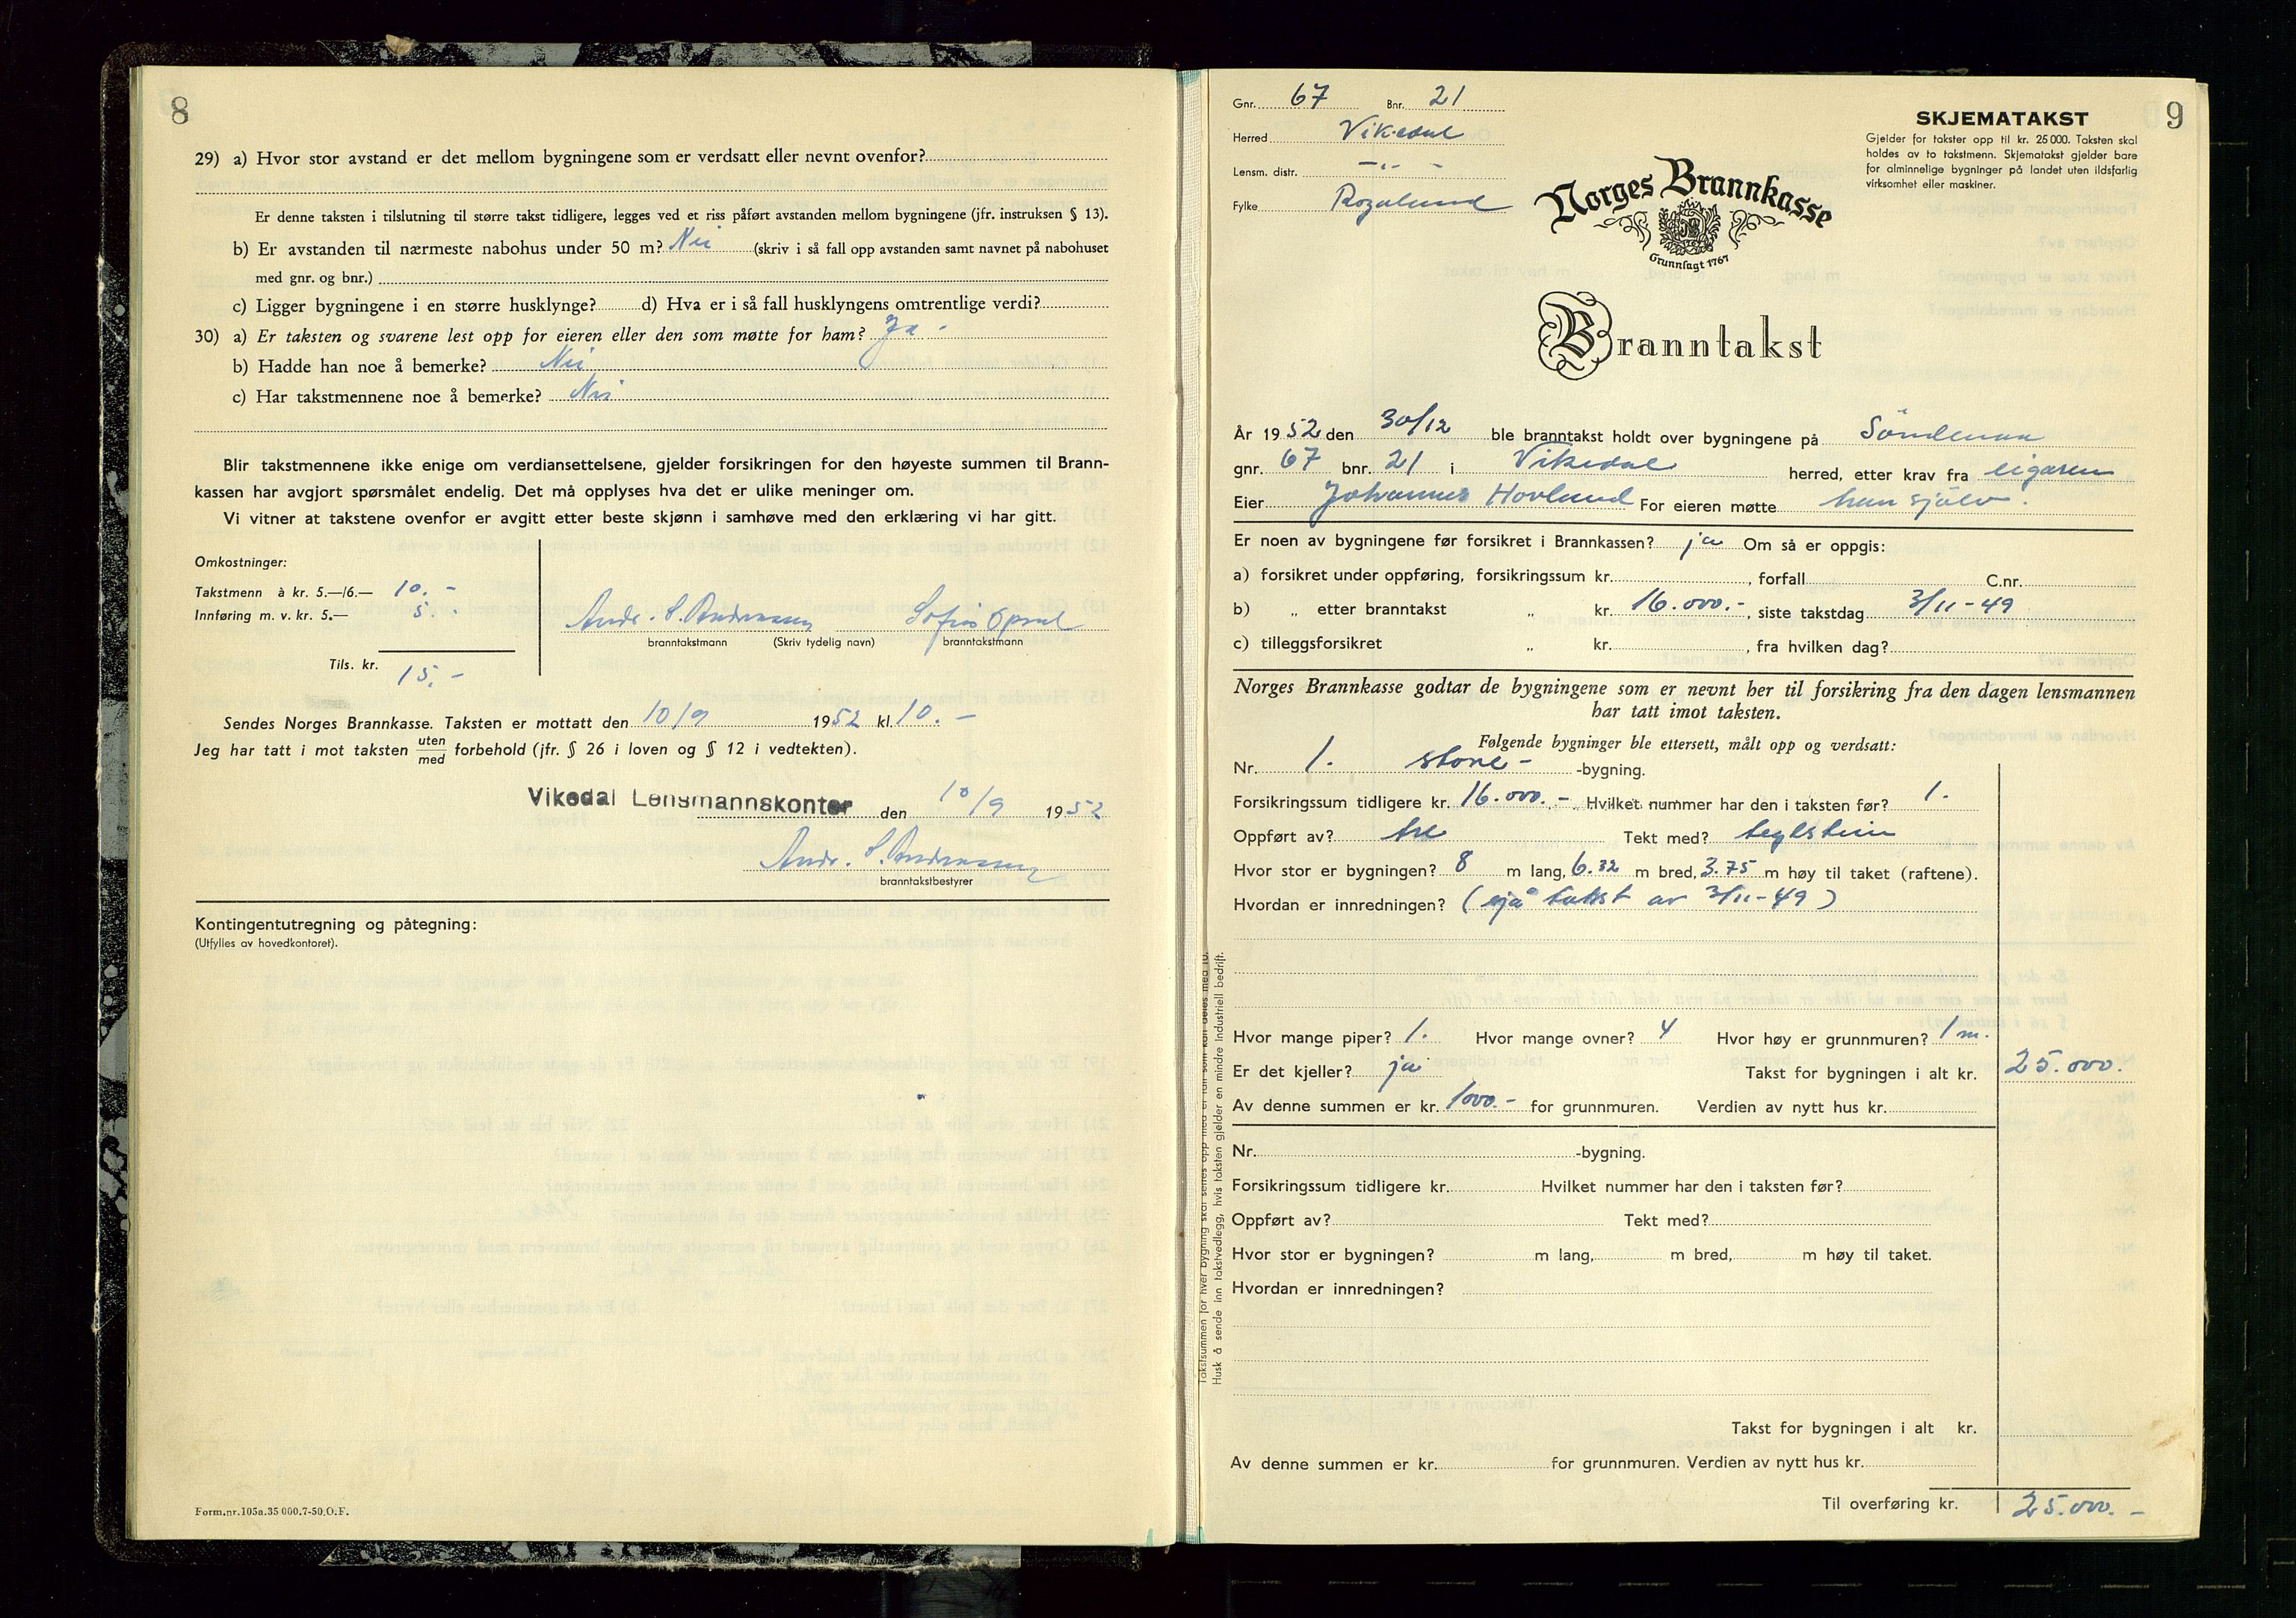 8
29) a) Hvor stor avstand er det mellom bygningene som er verdsatt eller nevnt ovenfor?
Er denne taksten i tilslutning til større takst tidligere, legges ved et riss påført avstanden mellom bygningene (jfr. instruksen § 13).
b) Er avstanden til nærmeste nabohus under 50 m? Nei (skriv i så fall opp avstanden samt navnet på nabohuset
med gnr. og bnr.)
c) Ligger bygningene i en større husklynge? d) Hva er i så fall husklyngens omtrentlige verdi?
30) a) Er taksten og svarene lest opp for eieren eller den som møtte for ham? Ja -
b) Hadde han noe å bemerke? Nei
c) Har takstmennene noe å bemerke? Nei
Blir takstmennene ikke enige om verdiansettelsene, gjelder forsikringen for den høyeste summen til Brann-
kassen har avgjort spørsmålet endelig. Det må opplyses hva det er ulike meninger om.
Vi vitner at takstene ovenfor er avgitt etter beste skjønn i samhøve med den erklæring vi har gitt.
Omkostninger:
Takstmenn à kr. 5.—/6.— 10.-
Innføring m. v. kr. 5.— 5.-
Andr. S. Andreassen Sofus Opsal
branntakstmann (Skriv tydelig navn) branntakstmann
Tils. kr. 15.-
Sendes Norges Brannkasse. Taksten er mottatt den 10/9 1952 kl. 10.-
Jeg har tatt i mot taksten uten/med forbehold (jfr. § 26 i loven og § 12 i vedtekten).
Vikedal Lensmannskontor den 10/9 1952
Andr. S. Andreassen
branntakstbestyrer
Kontingentutregning og påtegning:
(Utfylles av hovedkontoret).
Form.nr.105a.35 000.7-50.O.F.
9
Gnr. 67 Bnr. 21
Herred Vikedal
Lensm. distr. -"-
Fylke Rogaland
SKJEMATAKST
Gjelder for takster opp til kr. 25 000. Taksten skal
holdes av to takstmenn. Skjematakst gjelder bare
for alminnelige bygninger på landet uten ildsfarlig
virksomhet eller maskiner.
Norges Brannkasse
Grunnlagt 1767
Branntakst
År 1952 den 30/12 ble branntakst holdt over bygningene på
gnr. 67 bnr. 21 i Vikedal herred, etter krav fra eigaren
Eier Johannes Hovland For eieren møtte han sjølv.
Er noen av bygningene før forsikret i Brannkassen? ja Om så er oppgis:
a) forsikret under oppføring, forsikringssum kr. , forfall C.nr.
b) „ etter branntakst „ kr. 16.000.-, siste takstdag 3/11-49
c) tilleggsforsikret „ kr. , fra hvilken dag?
Norges Brannkasse godtar de bygningene som er nevnt her til forsikring fra den dagen lensmannen
har tatt imot taksten.
Følgende bygninger ble ettersett, målt opp og verdsatt:
Nr. 1. stove- -bygning.
Forsikringssum tidligere kr. 16.000.- Hvilket nummer har den i taksten før? 1.
Oppført av? tre Tekt med? teglstein
Hvor stor er bygningen? 8 m lang, 6.32 m bred, 3.75 m høy til taket (raftene).
Hvordan er innredningen? (sjå takst av 3/11-49)
Hvor mange piper? 1. Hvor mange ovner? 4 Hvor høy er grunnmuren? 1 m.
Er det kjeller? ja Takst for bygningen i alt kr. 25.000.
Av denne summen er kr. 1000.- for grunnmuren. Verdien av nytt hus kr.
Nr. -bygning.
Forsikringssum tidligere kr. Hvilket nummer har den i taksten før?
Oppført av? Tekt med?
Hvor stor er bygningen? m lang, m bred, m høy til taket.
Hvordan er innredningen?
Takst for bygningen i alt kr.
Av denne summen er kr. for grunnmuren. Verdien av nytt hus kr.
Til overføring kr. 25.000.-
Takstsummen for hver bygning skal
Husk å sende inn takstvedlegg, hvis taksten gjelder en mindre industriell bedrift.